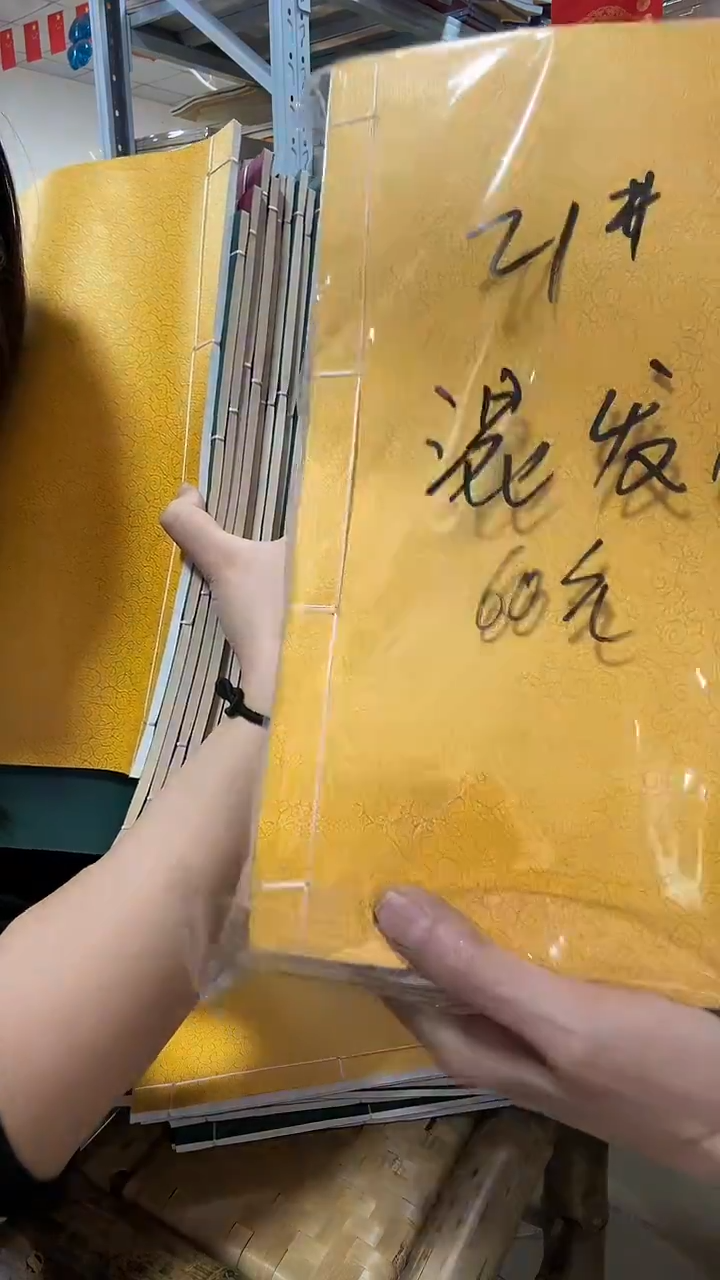 21#
混发
60元